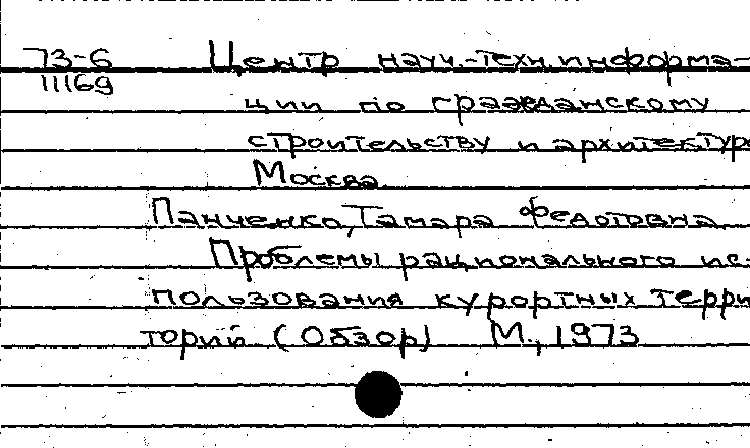 73-6 Центр науч.-техн.информа-
11169
ции по гражданскому
строительству и архитектуре
Москва.
Панченко, Тамара Федотовна
Проблемы рационального ис-
пользования курортных терри
торий (Обзор) М., 1973